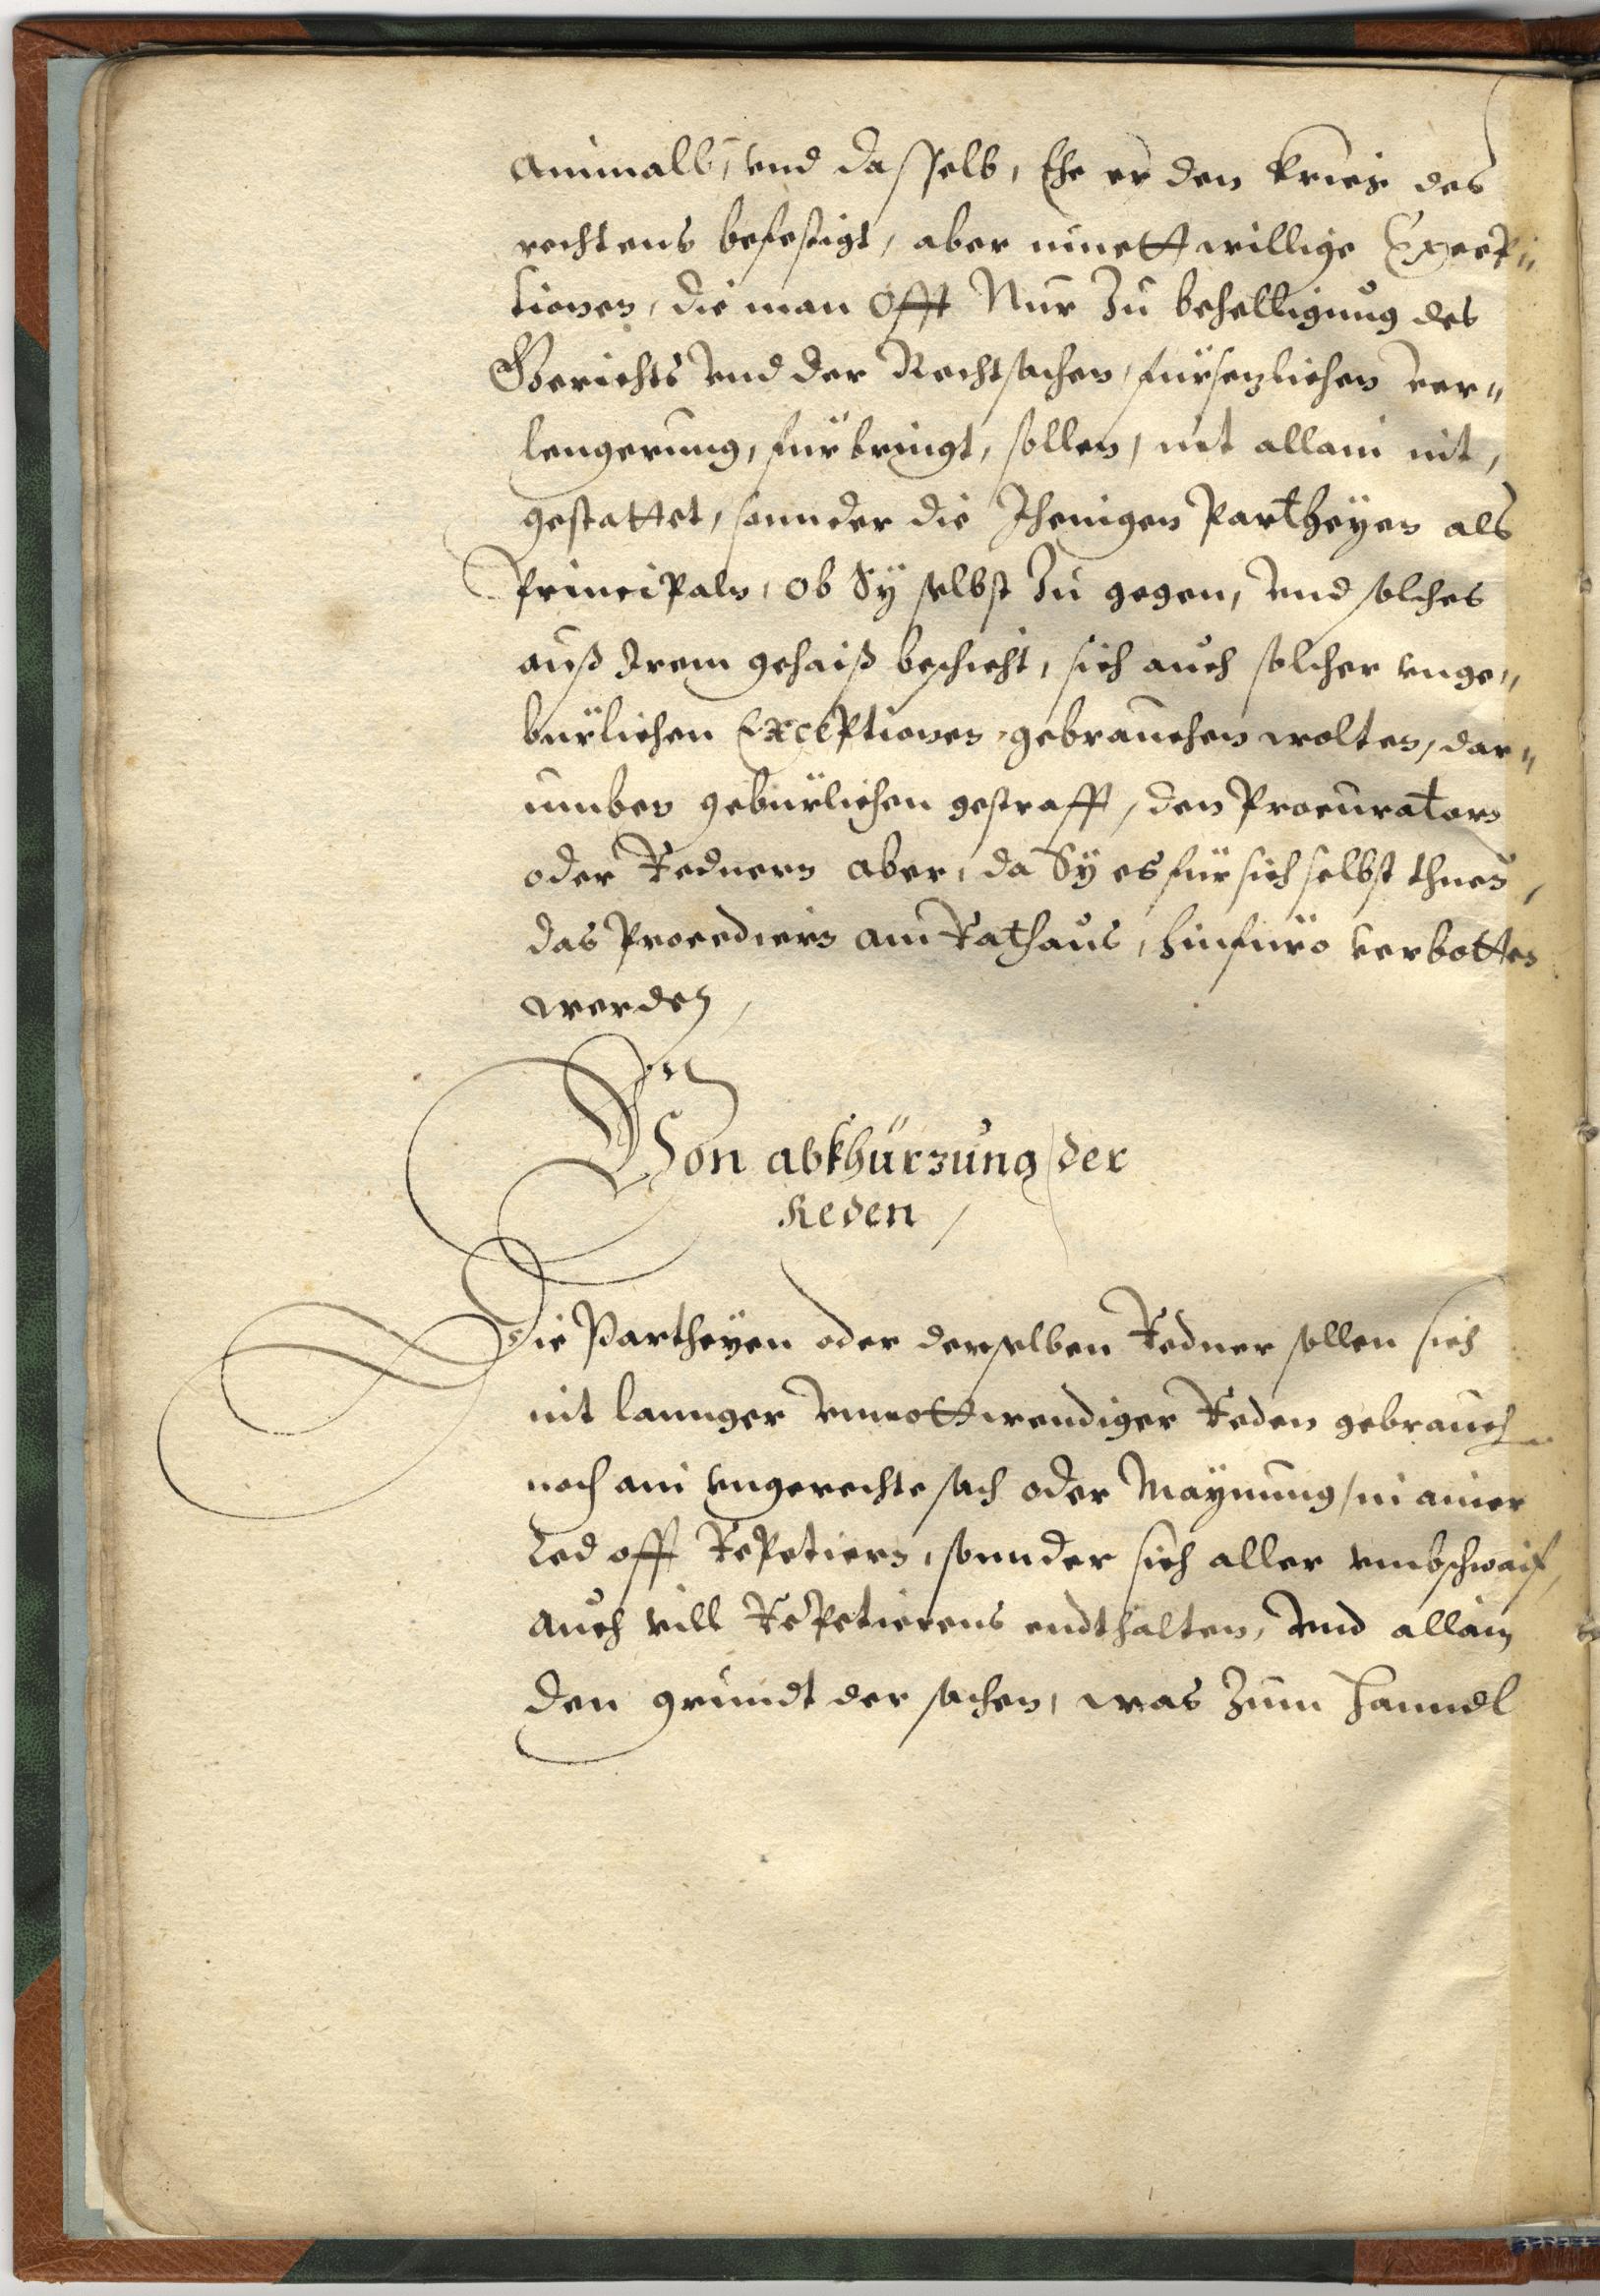 ainmalls, vnd dasselb, Ehe er den krieg des
rechtens befestigt, aber muettwillige Excep„
tionen, die man Offt Nur Zu behelligung des
Gerichts vnd der Rechtsachen, fürsezlichen ver„
lengerung, fürbringt, sollen, nit allain nit,
gestattet, sonnder die Jhenigen Partheÿen als
Principaln, ob Sÿ selbst Zu gegen, vnd solches
auß Jrem gehaiß beschicht, sich auch solcher vnge„
bürlichen Exceptionen gebrauchen wolten, dar„
umben gebürlichen gestrafft, den Procuratorn
oder Rednern aber, da Sÿ es für sich selbst thuen,
das Procediern am Rathaus, hinfüro verbotten
werden,
Von abkhürzung der
Reden,
Die Partheÿen oder derselben Redner sollen sich
nit lannger vnnottwendiger Reden gebrauchen
noch ain vngerechte sach oder Maÿnung, in ainer
Red offt Repetiern, sonnder sich aller vmbschwaif,
auch vill Repetierens endthalten, vnd allain
den grundt der sachen, was Zum hanndl